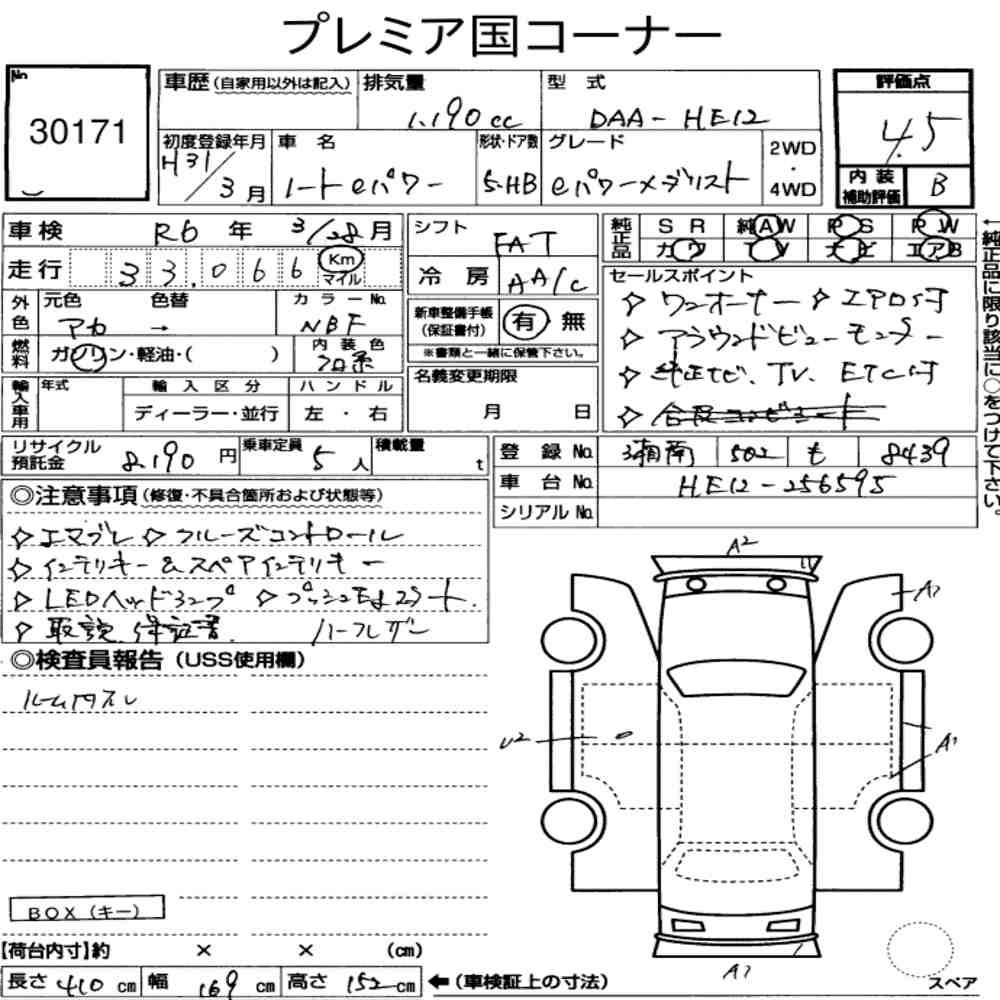 プレミア国コーナー
No.
30171
車歴 (自家用以外は記入)
排気量
1.190cc
型 式
DAA-HE12
評価点
4.5
初度登録年月
H31/3月
車 名
ノート eパワー
形状・ドア数
5-HB
グレード
eパワーメダリスト
2WD
・
4WD
内 装
補助評価
B
車検 R6 年 3/28月
シフト
FAT
純正品
SR 純AW PS PW
カワ TV ナビ エアB
走行 33.066 Km
マイル
冷 房 AA/C
セールスポイント
☆ ワンオーナー ☆ エアロ付
☆ アラウンドビューモニター
☆ 純正ナビ、TV、ETC付
外色
元色 色替 カラーNo.
アカ → NBF
新車整備手帳
(保証書付)
有 無
※書類と一緒に保管下さい。
燃料
ガソリン・軽油・( )
内装色
クロ系
輸入車用
年式
輸入区分
ハンドル
ディーラー・並行
左 ・ 右
名義変更期限
月 日
←純正品に限り該当に○をつけて下さい。
リサイクル
預託金
8.190 円
乗車定員
5人
積載量
t
登 録 No. 湘南 502 も 8439
車 台 No. HE12-256595
シリアル No.
◎注意事項 (修復・不具合箇所および状態等)
☆エマブレ ☆クルーズコントロール
☆インテリキー&スペアインテリキー
☆LEDヘッドランプ ☆プッシュスタート.
☆取説、保証書. ハーフレザー
◎検査員報告 (USS使用欄)
ルーム内スレ
A2
A1
U2
A1
A1
BOX(キー)
【荷台内寸】約 × × (cm)
長さ 410 cm 幅 169 cm 高さ 152 cm ←(車検証上の寸法)
スペア